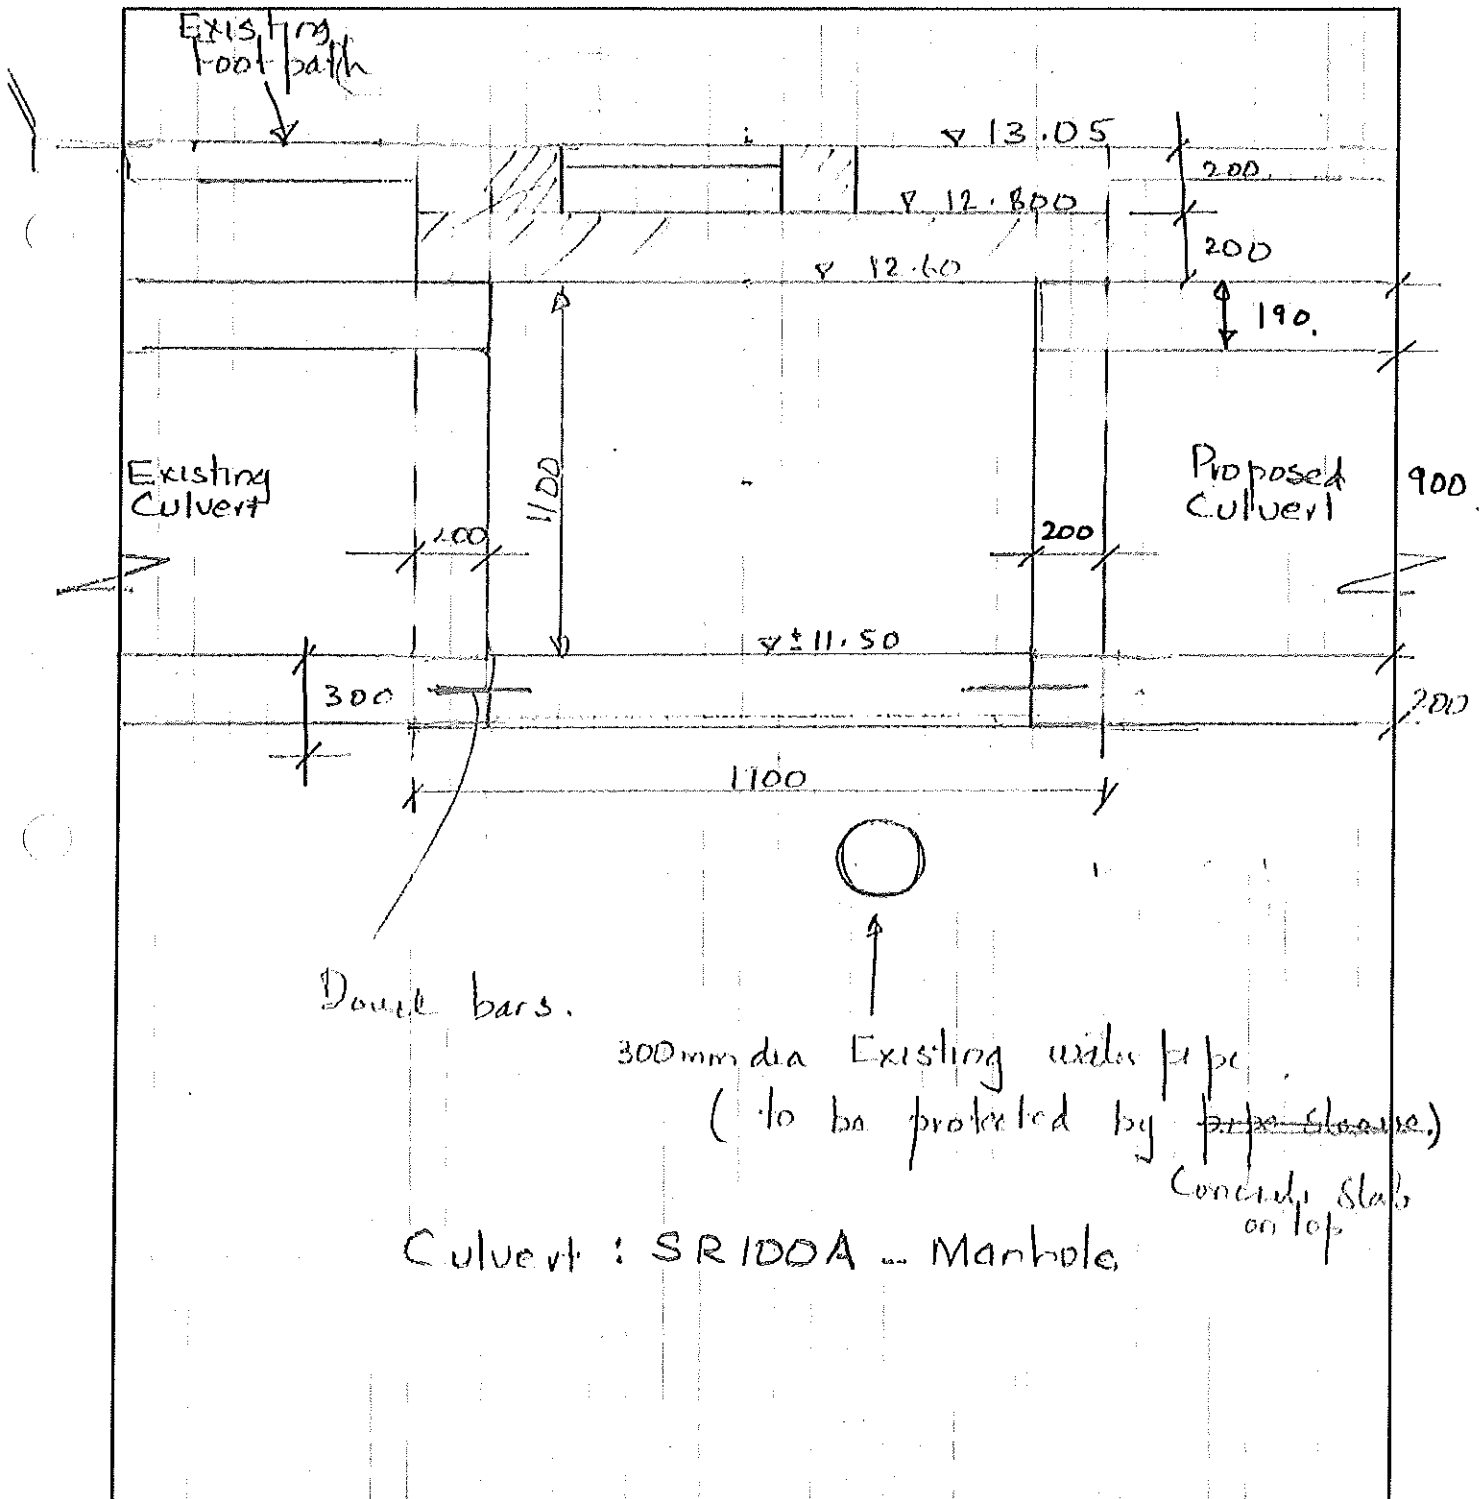 Existing
Foot path
13.05
200.
12.800
200
12.60
190.
Existing
Culvert
1100
Proposed
Culvert
900
200
200
±11.50
300
200
1100
bars.
300mm dia Existing water pipe
(to be protected by pipe sleeve.)
Concrete Slab
on top
Culvert : SR100A - Manhole